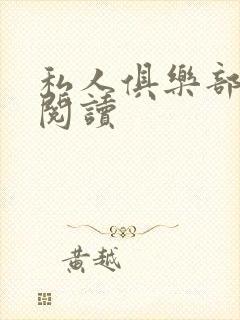 私人俱樂部
閱讀
黃越